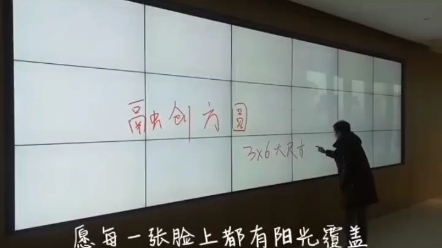 融创方圆
3x6大尺寸
愿每一张脸上都有阳光覆盖